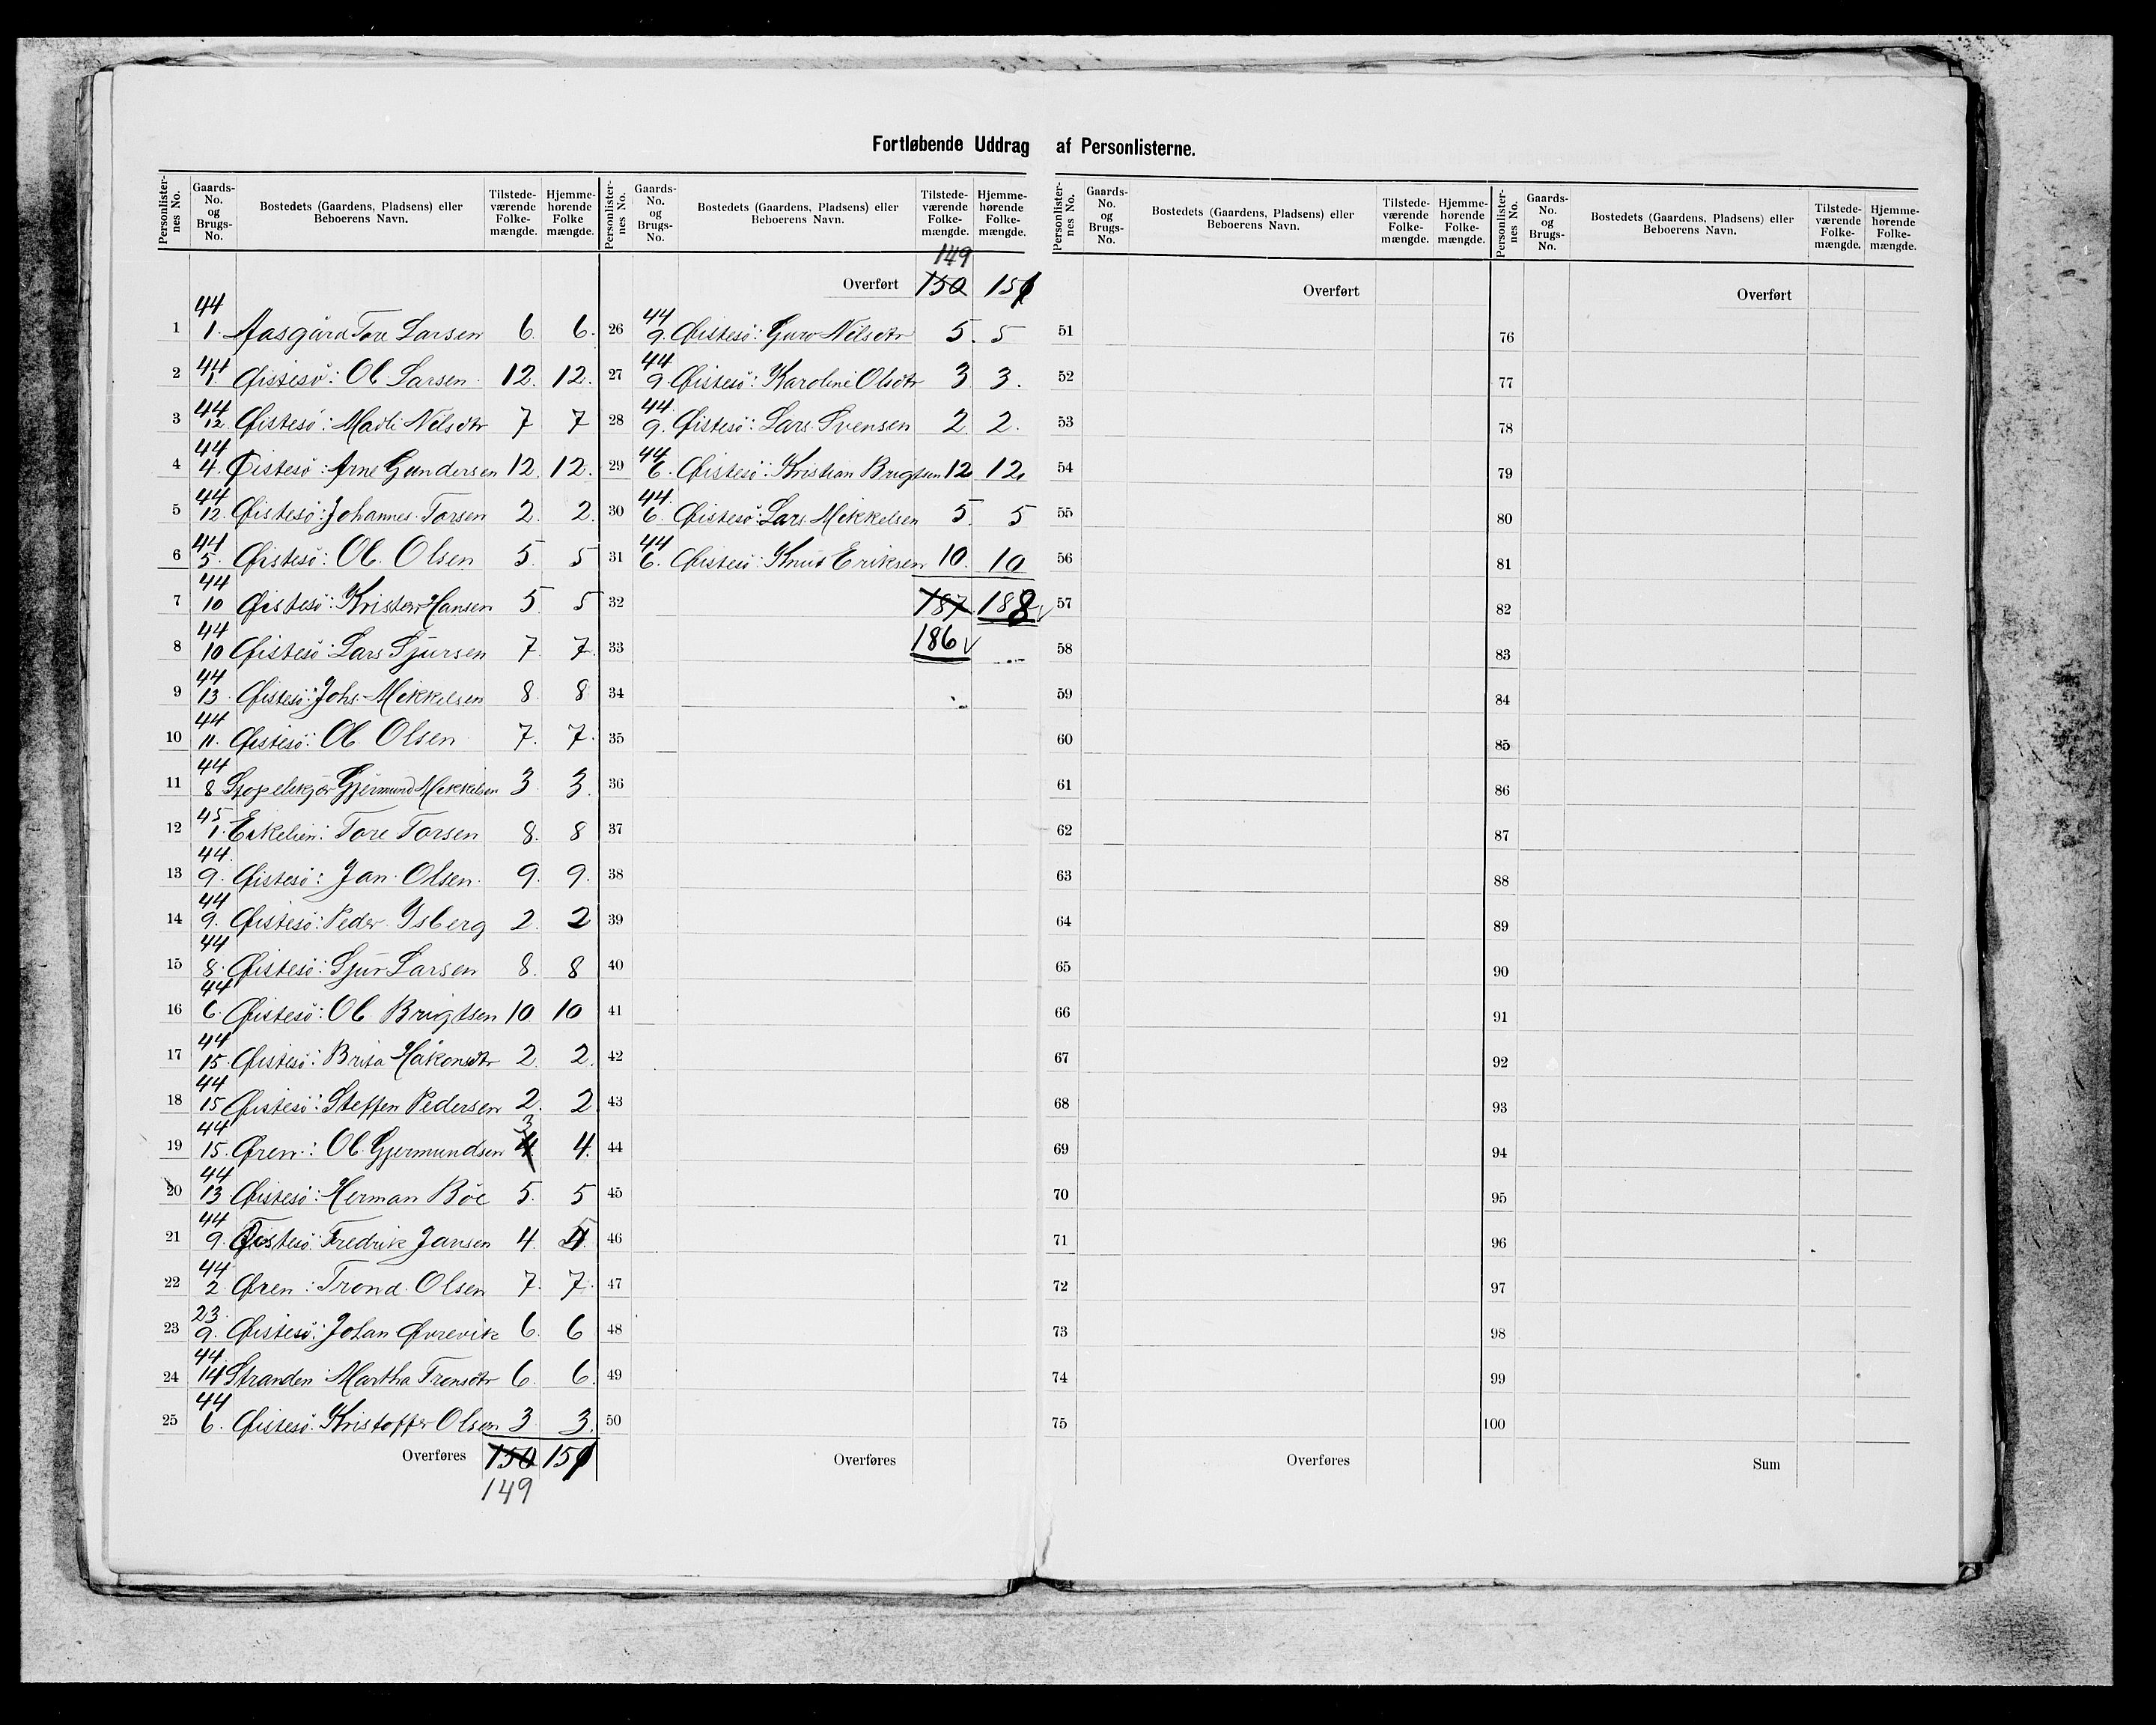 Fortløbende Uddrag af Personlisterne.
Personlisternes No. Gaards-No. og Brugs-No. Bostedets (Gaardens, Pladsens) eller Beboerens Navn. Tilstedeværende Folkemængde. Hjemmehørende Folke mængde.
1 44 1. Aasgård Tore Larsen 6. 6.
2 44 1. Øistesö: Ol. Larsen. 12. 12.
3 44 12. Øistesö: Madli Nilsdtr 7 7
4 44 4. Øistesö: Arne Gundersen 12. 12.
5 44 12. Øistesö: Johannes Torsen 2. 2.
6 44 5. Øistesö: Ol. Olsen 5. 5
7 44 10 Øistesö: Krister Hansen 5. 5
8 44 10 Øistesö: Lars Sjursen 7. 7.
9 44 13. Øistesö: Johs. Mikkelsen 8. 8
10 44 11. Øistesö: Ol. Olsen 7. 7.
11 44 8 Gjermund Mikkelsen 3. 3.
12 45 1. Eikelien: Tore Torsen 8. 8
13 44. 9. Øistesö: Jan Olsen. 9. 9.
14 44 9. Øistesö: Peder Isberg 2. 2
15 44 8. Øistesö: Sjur Larsen 8. 8
16 44 6. Øistesö: Ol. Brigtsen 10 10
17 44 15. Øistesö: Brita Håkonsdtr 2. 2.
18 44 15 Øistesö: Steffen Pedersen 2. 2
19 44 15. Øren: Ol. Gjermundsen 4. 3 4.
20 44 13 Øistesö: Herman Böe 5. 5
21 44 9. Øistesö: Fredrik Jansen 4. 4. 5
22 44 2. Øren: Trond Olsen 7. 7.
23 23. 9. Øistesö: Johan Øvrevik 6. 6
24 44. 14 Stranden Martha Tronsdtr 6. 6.
25 44 6. Øistesö: Kristoffer Olsen 3. 3.
Overføres 150 151
149
Personlisternes No. Gaards-No. og Brugs-No. Bostedets (Gaardens, Pladsens) eller Beboerens Navn. Tilstedeværende Folkemængde. Hjemmehørende Folkemængde.
149
Overført 150 151
26 44 9. Øistesö: Guro Nilsdtr 5. 5
27 44 9. Øistesö: Karoline Olsdtr 3 3.
28 44. 9. Øistesö: Lars Svensen 2. 2.
29 44 6. Øistesö: Kristian Brigtsen 12 12.
30 44. 6. Øistesö: Lars Mikkelsen 5. 5
31 44 6. Øistesö: Knut Eriksen 10. 10
32 187. 188
33 186
34
35
36
37
38
39
40
41
42
43
44
45
46
47
48
49
50
Overføres
Personlisternes No. Gaards-No. og Brugs-No. Bostedets (Gaardens, Pladsens) eller Beboerens Navn. Tilstedeværende Folkemængde. Hjemmehørende Folkemængde.
Overført
51
52
53
54
55
56
57
58
59
60
61
62
63
64
65
66
67
68
69
70
71
72
73
74
75
Overføres
Personlisternes No. Gaards-No. og Brugs-No. Bostedets (Gaardens, Pladsens) eller Beboerens Navn. Tilstedeværende Folkemængde. Hjemmehørende Folkemængde.
Overført
76
77
78
79
80
81
82
83
84
85
86
87
88
89
90
91
92
93
94
95
96
97
98
99
100
Sum